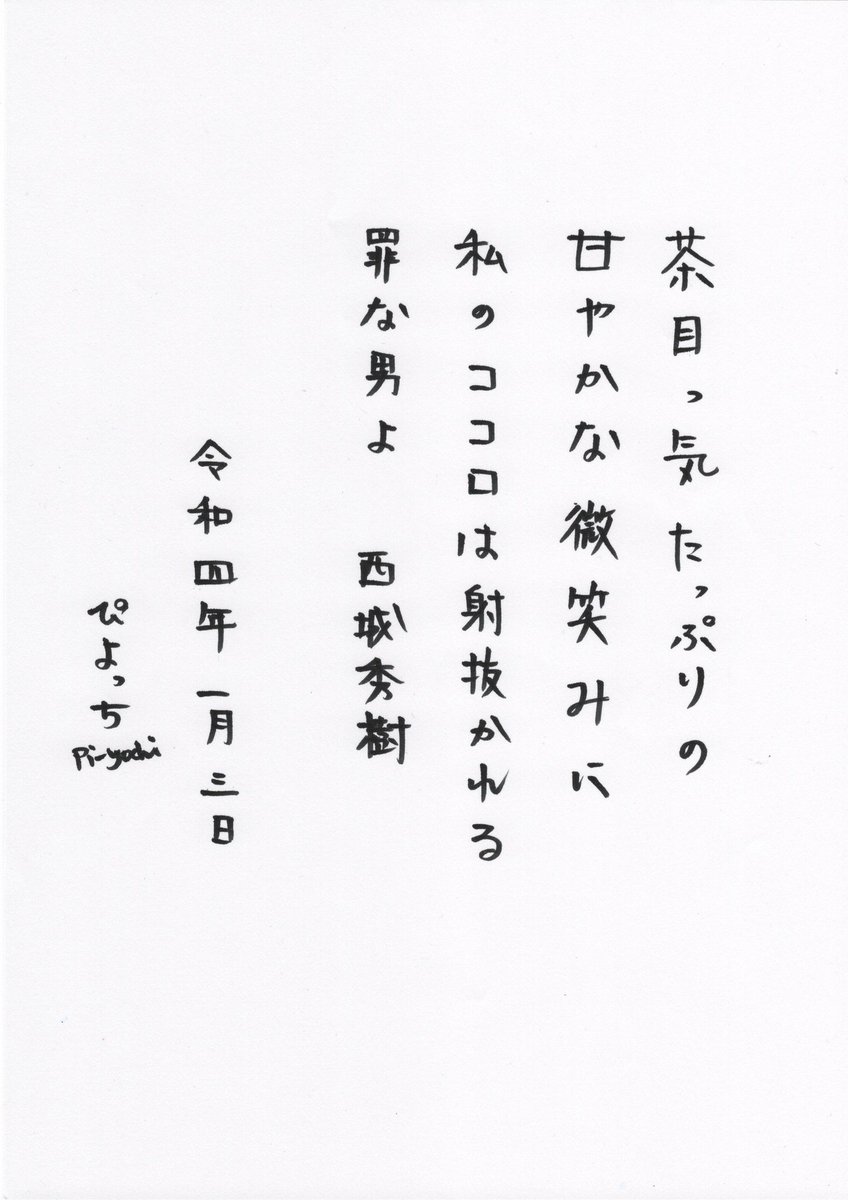 茶目っ気たっぷりの
甘やかな微笑みに
私のココロは射抜かれる
罪な男よ　西城秀樹
令和四年 一月三日
ぴよっち
Pi-yochi